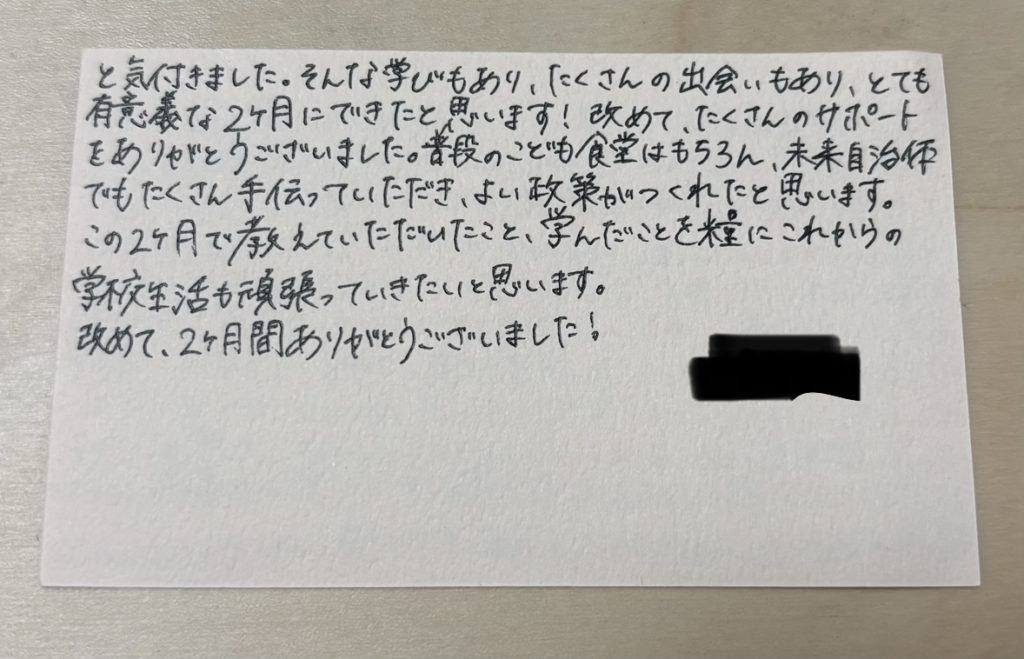 と気付きました。そんな学びもあり、たくさんの出会いもあり、とても
有意義な2ヶ月にできたと思います!改めて、たくさんのサポート
をありがとうございました。普段のこども食堂はもちろん、未来自治体
でもたくさん手伝っていただき、よい政策がつくれたと思います。
この2ヶ月で教えていただいたこと、学んだことを糧にこれからの
学校生活も頑張っていきたいと思います。
改めて、2ヶ月間ありがとうございました!